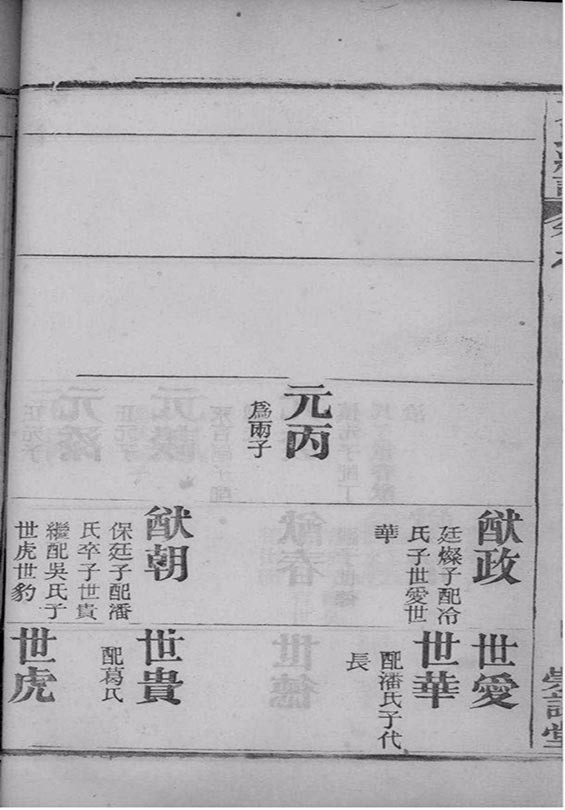 元丙
爲兩子
猷政
廷燦子配冷
氏子世愛世
華
猷朝
保廷子配潘
氏卒子世貴
繼配吳氏子
世虎世豹
世愛
世華
配潘氏子代
長
世貴
配葛氏
世虎